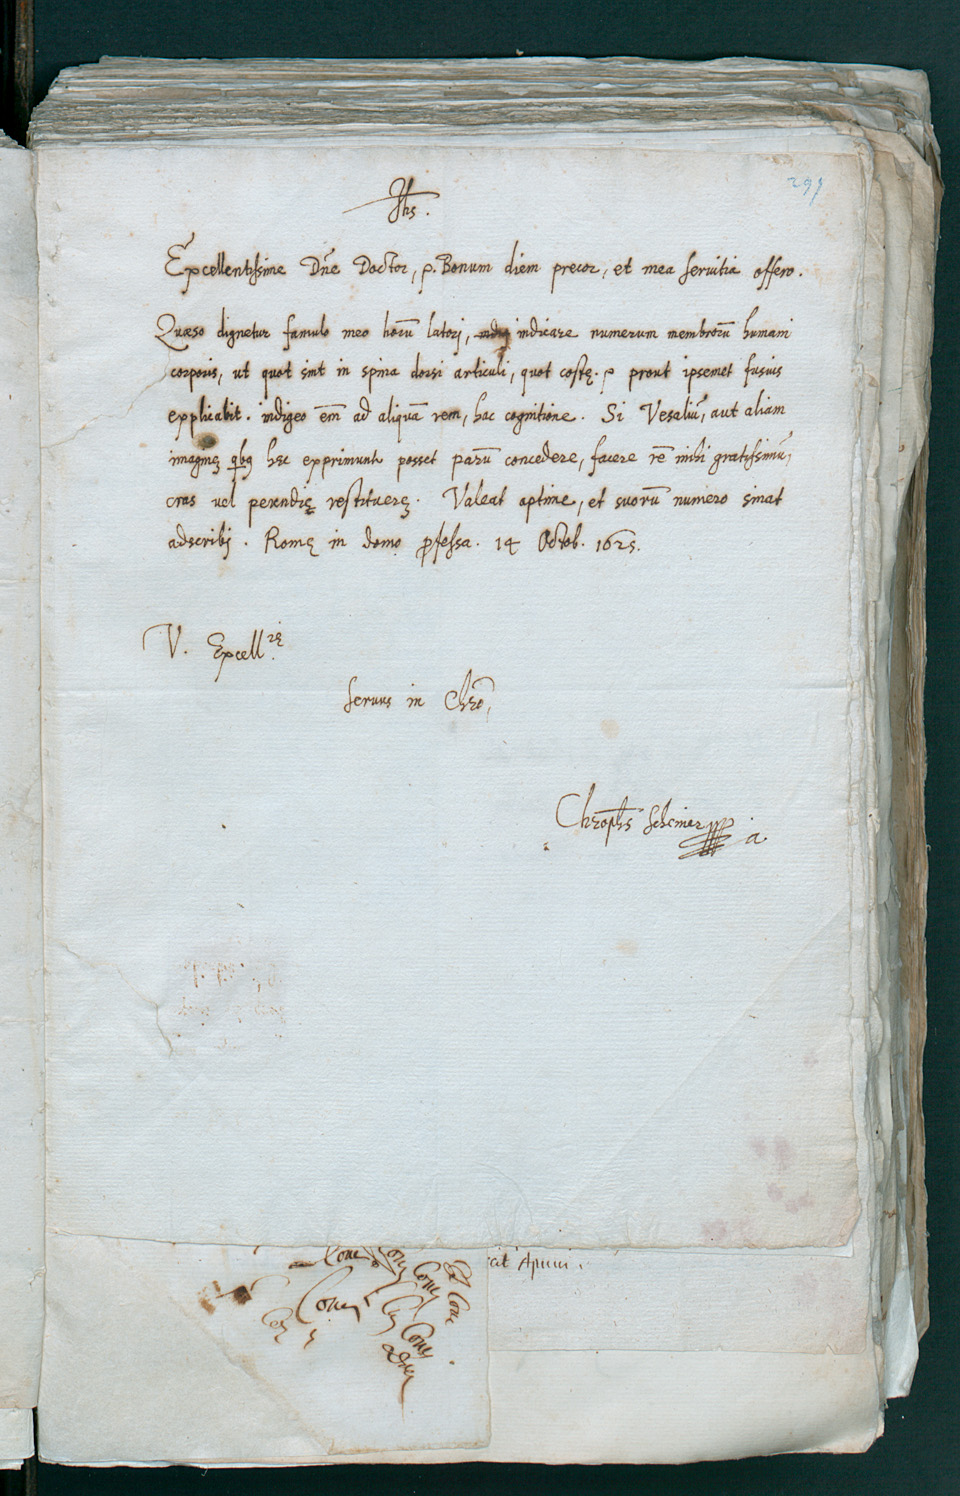 291
Jhs.
Excellentissime Dñe Doctor, p. Bonum diem precor, et mea servitia offero.
Quæso dignetur famulo meo horũ latori, indicare numerum membrorũ humani
corporis, ut quot sint in spina dorsi articuli, quot costę. prout ipsemet fusius
explicabit. indigeo em̃ ad aliquã rem, hac cognitione. Si Vesaliũ, aut aliam
imaginẽ qbq hęc exprimunt posset parũ concedere, facere rẽ mihi gratissimũ,
cras vel perendię restituerẽ. Valeat optime, et suorũ numero sinat
adscribj. Romę in domo pfessa. 14 Octob. 1625.
V. Excell.
servus in Chro,
Chrophs Scheiner
Cone Cony Cony
Cony Cony
cit